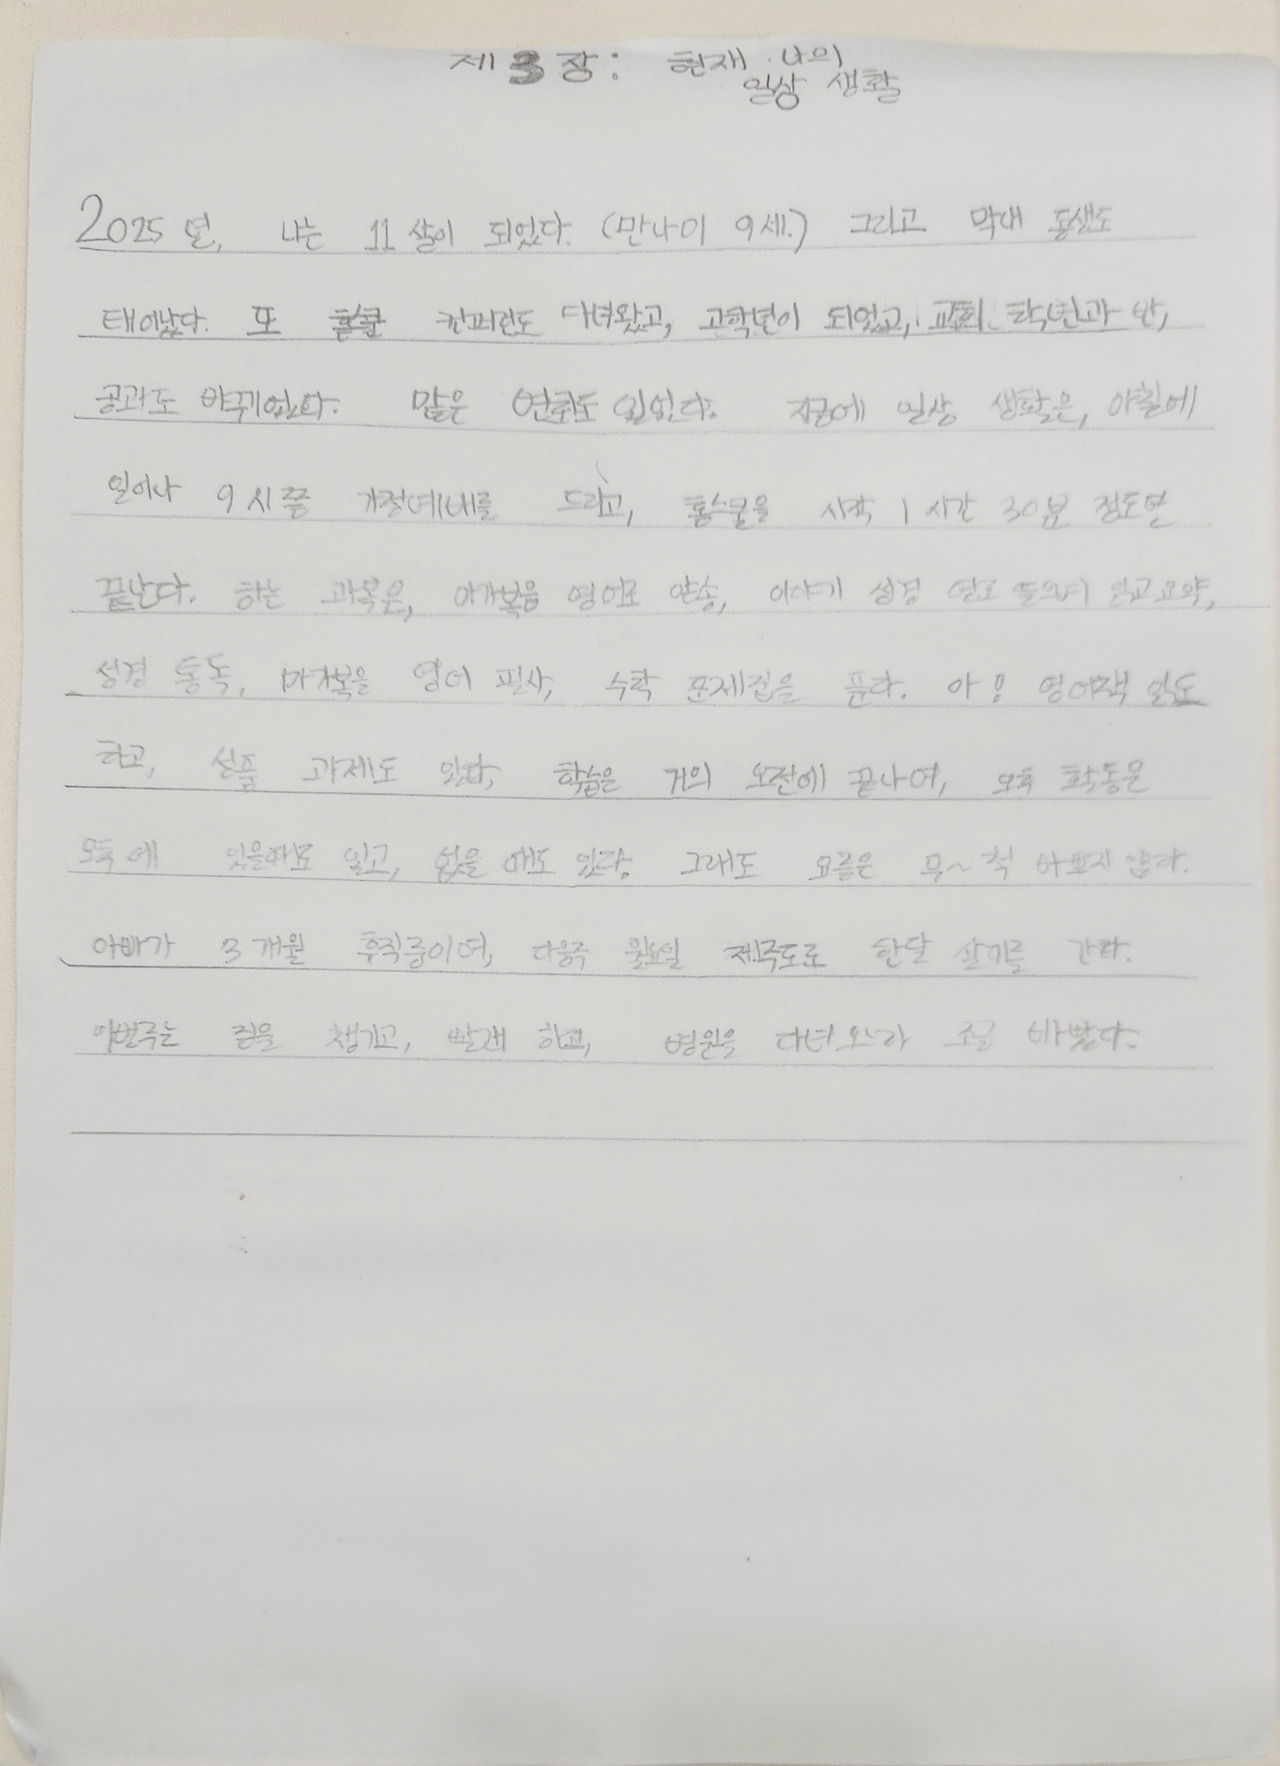 제 3 장: 현재 나의
일상 생활
2025년, 나는 11살이 되었다. (만나이 9세.) 그리고 막내 동생도
태어났다. 또 홈스쿨 컨퍼런도 다녀왔고, 고학년이 되었고, 교회 학년과 반,
공과도 바뀌었다. 많은 변화도 있었다. 지금에 일상 생활은, 아침에
일어나 9시쯤 가정예배를 드리고, 홈스쿨을 시작 1시간 30분 정도면
끝난다. 하는 과목은, 마가복음 영어로 암송, 이야기 성경 읽고요약,
성경 통독, 마가복음 영어 필사, 수학 문제집을 푼다. 아! 영어책 읽도
하고, 성품 과제도 있다. 학습은 거의 오전에 끝나며, 오후 활동은
오후에 있을때도 있고, 없을 때도 있다. 그래도 요즘은 무~척 바쁘지 않다.
아빠가 3개월 휴직중이며, 다음주 월요일 제주도로 한달 살기를 간다.
이번주는 짐을 챙기고, 빨래 하고, 병원을 다녀오느라 조금 바빴다.